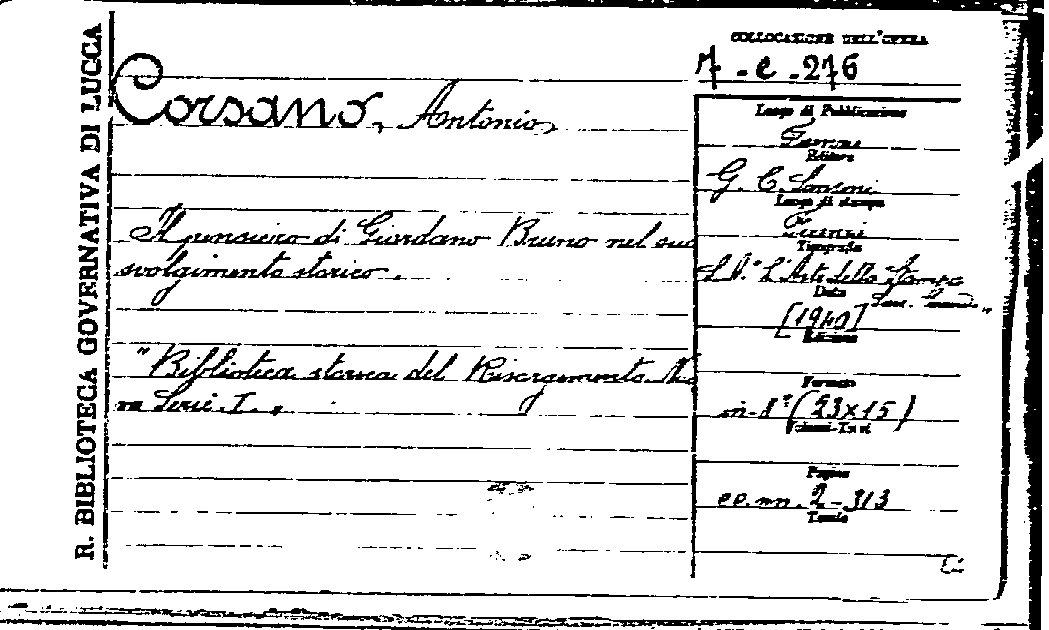 R. BIBLIOTECA GOVERNATIVA DI LUCCA
COLLOCAZIONE DELL'OPERA
7-e-276
Corsano, Antonio
Il pensiero di Giordano Bruno nel suo
svolgimento storico.
"Biblioteca storica del Risorgimento. Nuo
va Serie. I.,
Luogo di Pubblicazione
Firenze
Editore
G. C. Sansoni
Luogo di stampa
Firenze
Tipografia
S. A. "L'Arte della Stampa
Data
[1940]
Edizione
Formato
in-8° (23x15)
Volumi-Tomi
Pagine
cc. nn. 2-313
Tavole